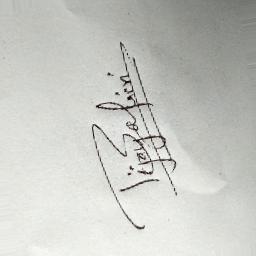 Tijay Saini